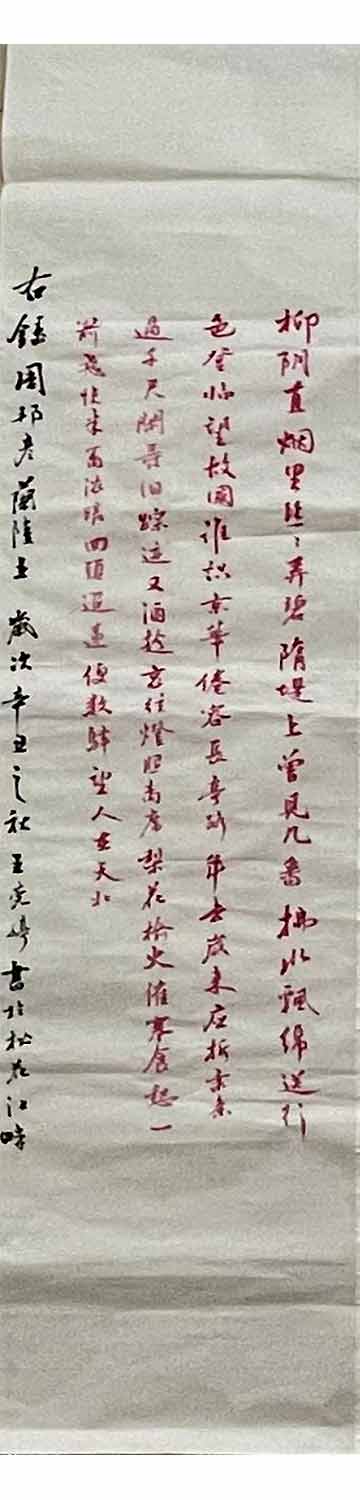 柳阴直烟里丝丝弄碧隋堤上曾见几番拂水飘绵送行
色登临望故国谁识京华倦客长亭路年去岁来应折柔条
过千尺闲寻旧踪迹又酒趁哀弦燈照离席梨花榆火催寒食愁一
箭风快半篙波暖回头迢递便数驿望人在天北
右錄周邦彦蘭陵王 歲次辛丑之秋王 書於松花江畔